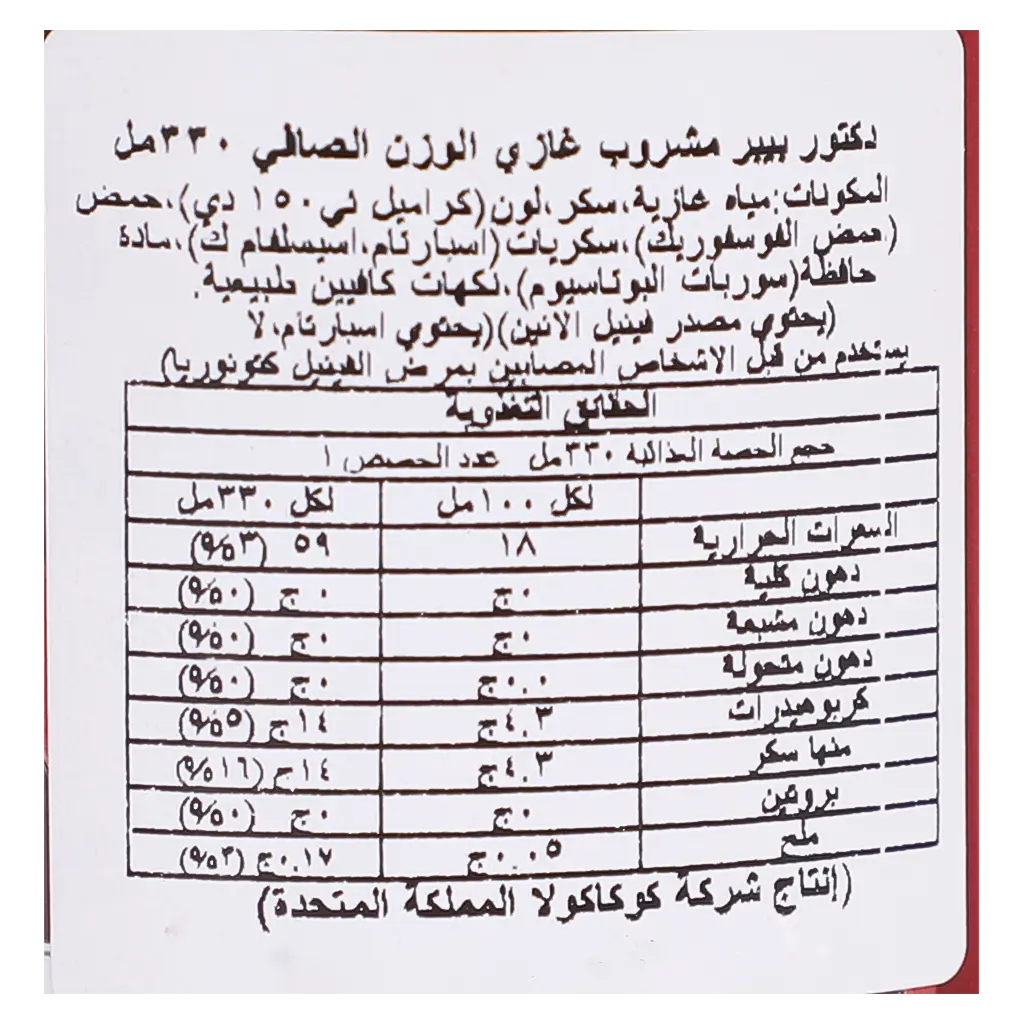 دكتور بيبر مشروب غازي الوزن الصافي ٣٣٠مل
المكونات:مياه غازية،سكر،لون(كراميل ئي١٥٠ دي)،حمض
(حمض الفوسفوريك)،سكريات(اسبارتام،اسيسلفام ك)،مادة
حافظة(سوربات البوتاسيوم)،نكهات كافيين طبيعية.
(يحتوي مصدر فينيل الانين)(يحتوي اسبارتام،لا
يستخدم من قبل الاشخاص المصابين بمرض الفينيل كتونوريا)
الحقائق التغذوية
حجم الحصة الغذائية ٣٣٠مل عدد الحصص ١
لكل ١٠٠مل لكل ٣٣٠مل
السعرات الحرارية ١٨ ٥٩ (٣%)
دهون كلية ٠ج ٠ج (٠%)
دهون مشبعة ٠ج ٠ج (٠%)
دهون متحولة ٠.٠ج ٠ج (٠%)
كربوهيدرات ٤.٣ج ١٤ج (٥%)
منها سكر ٤.٣ج ١٤ج (١٦%)
بروتين ٠ج ٠ج (٠%)
ملح ٠.٠٥ج ٠.١٧ج (٣%)
(إنتاج شركة كوكاكولا المملكة المتحدة)